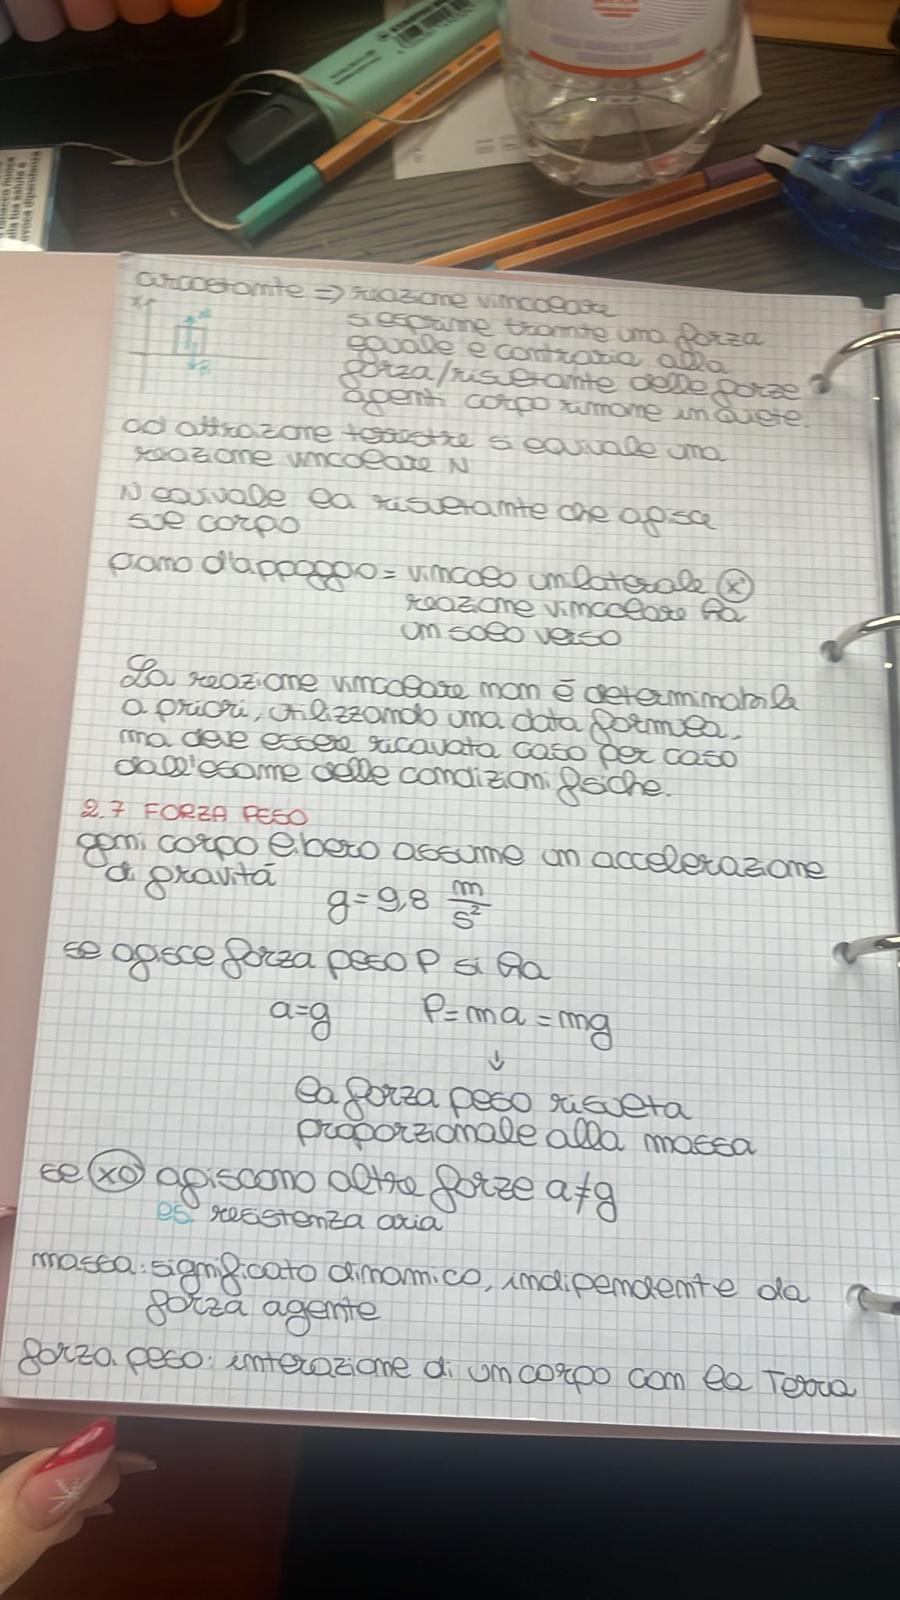 circostante => reazione vincolare
si esprime tramite una forza
eguale e contraria alla
forza/risultante delle forze
agenti corpo rimane in quiete.
N
ad attrazione terrestre si equivale una
reazione vincolare N
N equivale la risultante che agisce
sul corpo
piano d'appoggio = vincolo unilaterale
reazione vincolare ha
un solo verso
La reazione vincolare non è determinabile
a priori, utilizzando una data formula,
ma deve essere ricavata caso per caso
dall'esame delle condizioni fisiche.
2.7 FORZA PESO
ogni corpo libero assume un accelerazione
di gravità
g = 9,8 m/s²
se agisce forza peso P si ha
a=g P=ma=mg
↓
la forza peso risulta
proporzionale alla massa
se xò agiscono altre forze a≠g
es. resistenza aria
massa: significato dinamico, indipendente da
forza agente
forza peso: interazione di un corpo con la Terra